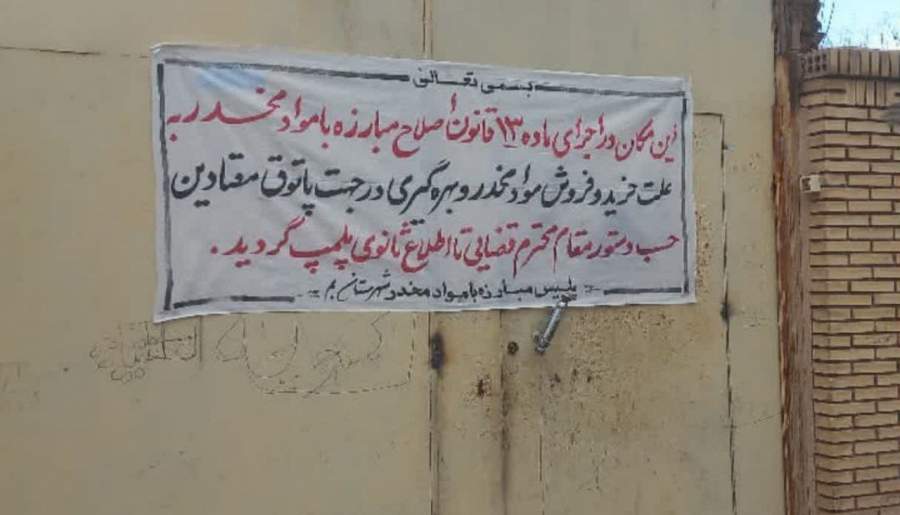 بسمی تعالی
این مکان در اجرای ماده ۱۳ قانون اصلاح مبارزه با مواد مخدر به
علت خرید و فروش مواد مخدر و بهره گیری در جهت پاتوق معتادین
حسب دستور مقام محترم قضایی تا اطلاع ثانوی پلمپ گردید .
پلیس مبارزه با مواد مخدر شهرستان بم